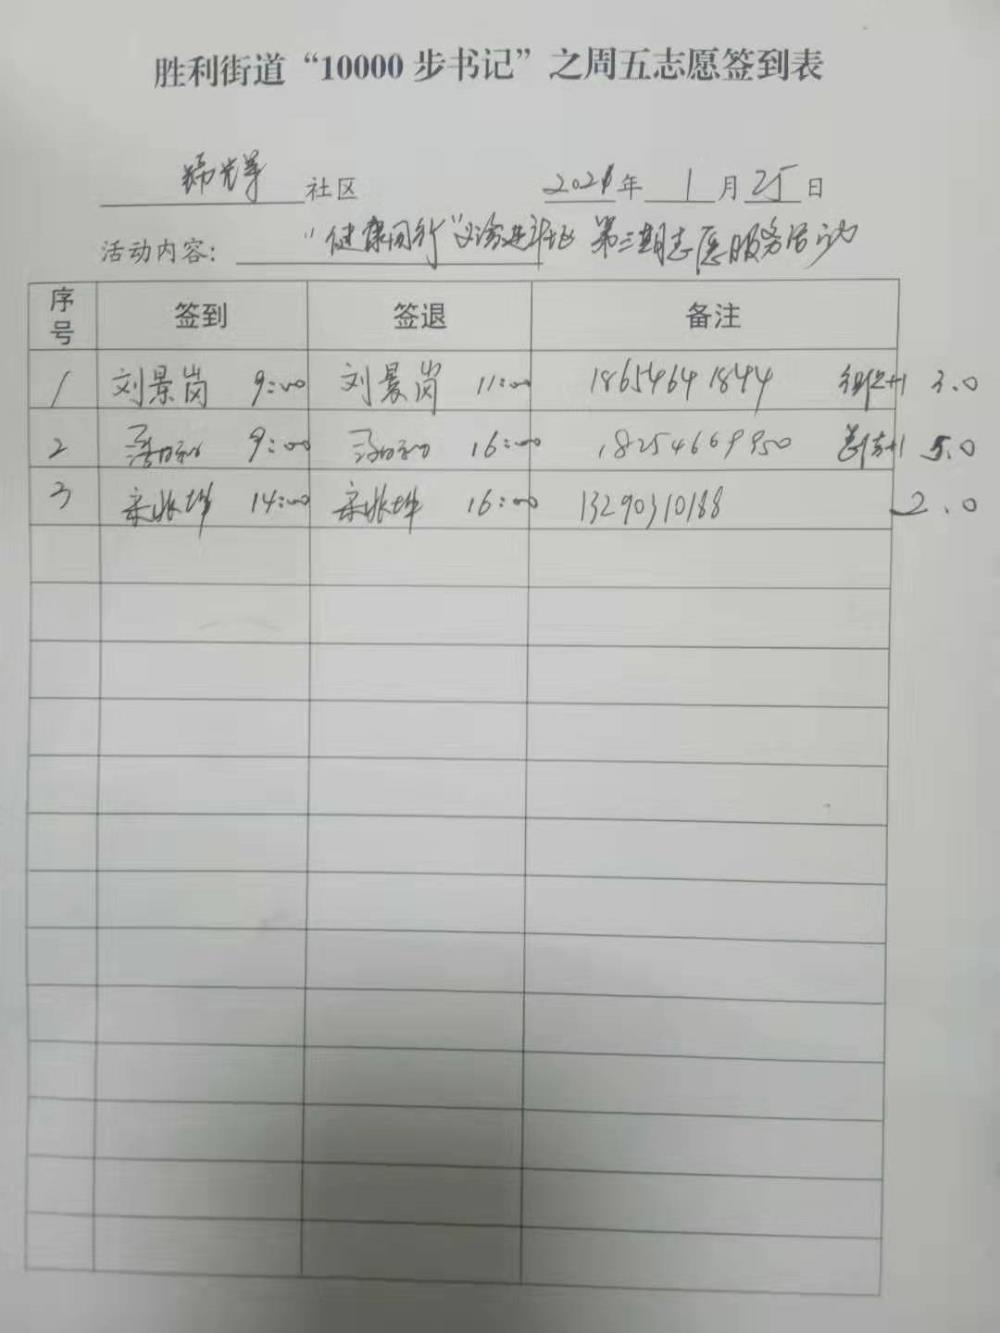 胜利街道“10000步书记”之周五志愿签到表
社区 2021年 1月25日
活动内容: “健康同行”义诊进社区 第三期志愿服务活动
序号 签到 签退 备注
1 刘景岗 9:00 刘景岗 11:00 18654641844 3.0
2 9:00 16:00 18254669950 5.0
3 宋兆坤 14:00 宋兆坤 16:00 13290310188 2.0